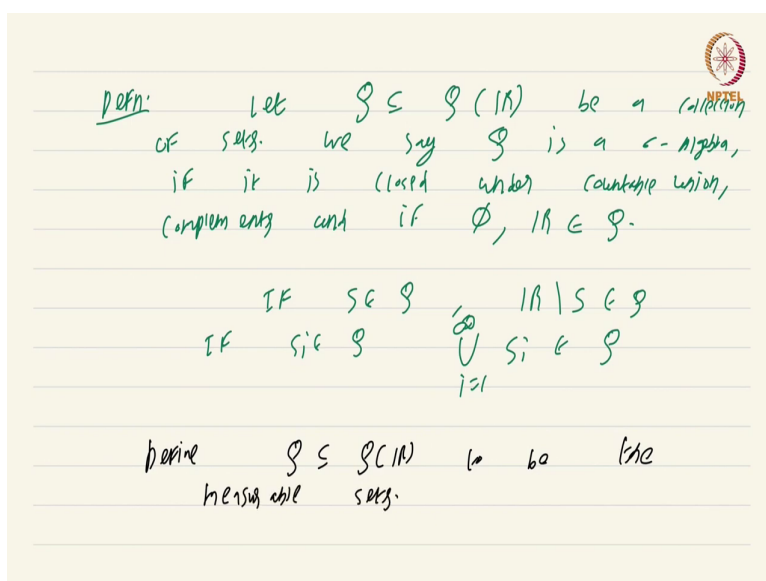 Defn: Let 𝒮 ⊆ 𝒫(ℝ) be a collection
of sets. We say 𝒮 is a σ-Algebra,
if it is closed under countable union,
complements and if ∅, ℝ ∈ 𝒮.
If S ∈ 𝒮, ℝ \ S ∈ 𝒮
If Si ∈ 𝒮 ∞ ⋃ i=1 Si ∈ 𝒮
Define 𝒮 ⊆ 𝒫(ℝ) to be the
measurable sets.
NPTEL